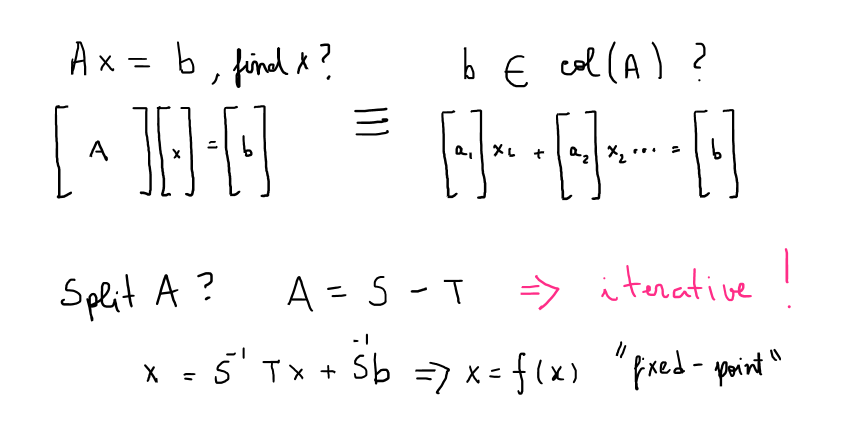 Ax = b, find x?
b ∈ col(A) ?
[A][x] = [b] ≡ [a₁]x₁ + [a₂]x₂ ... = [b]
Split A? A = S - T ⇒ iterative!
x = S⁻¹Tx + S⁻¹b ⇒ x = f(x) "fixed-point"